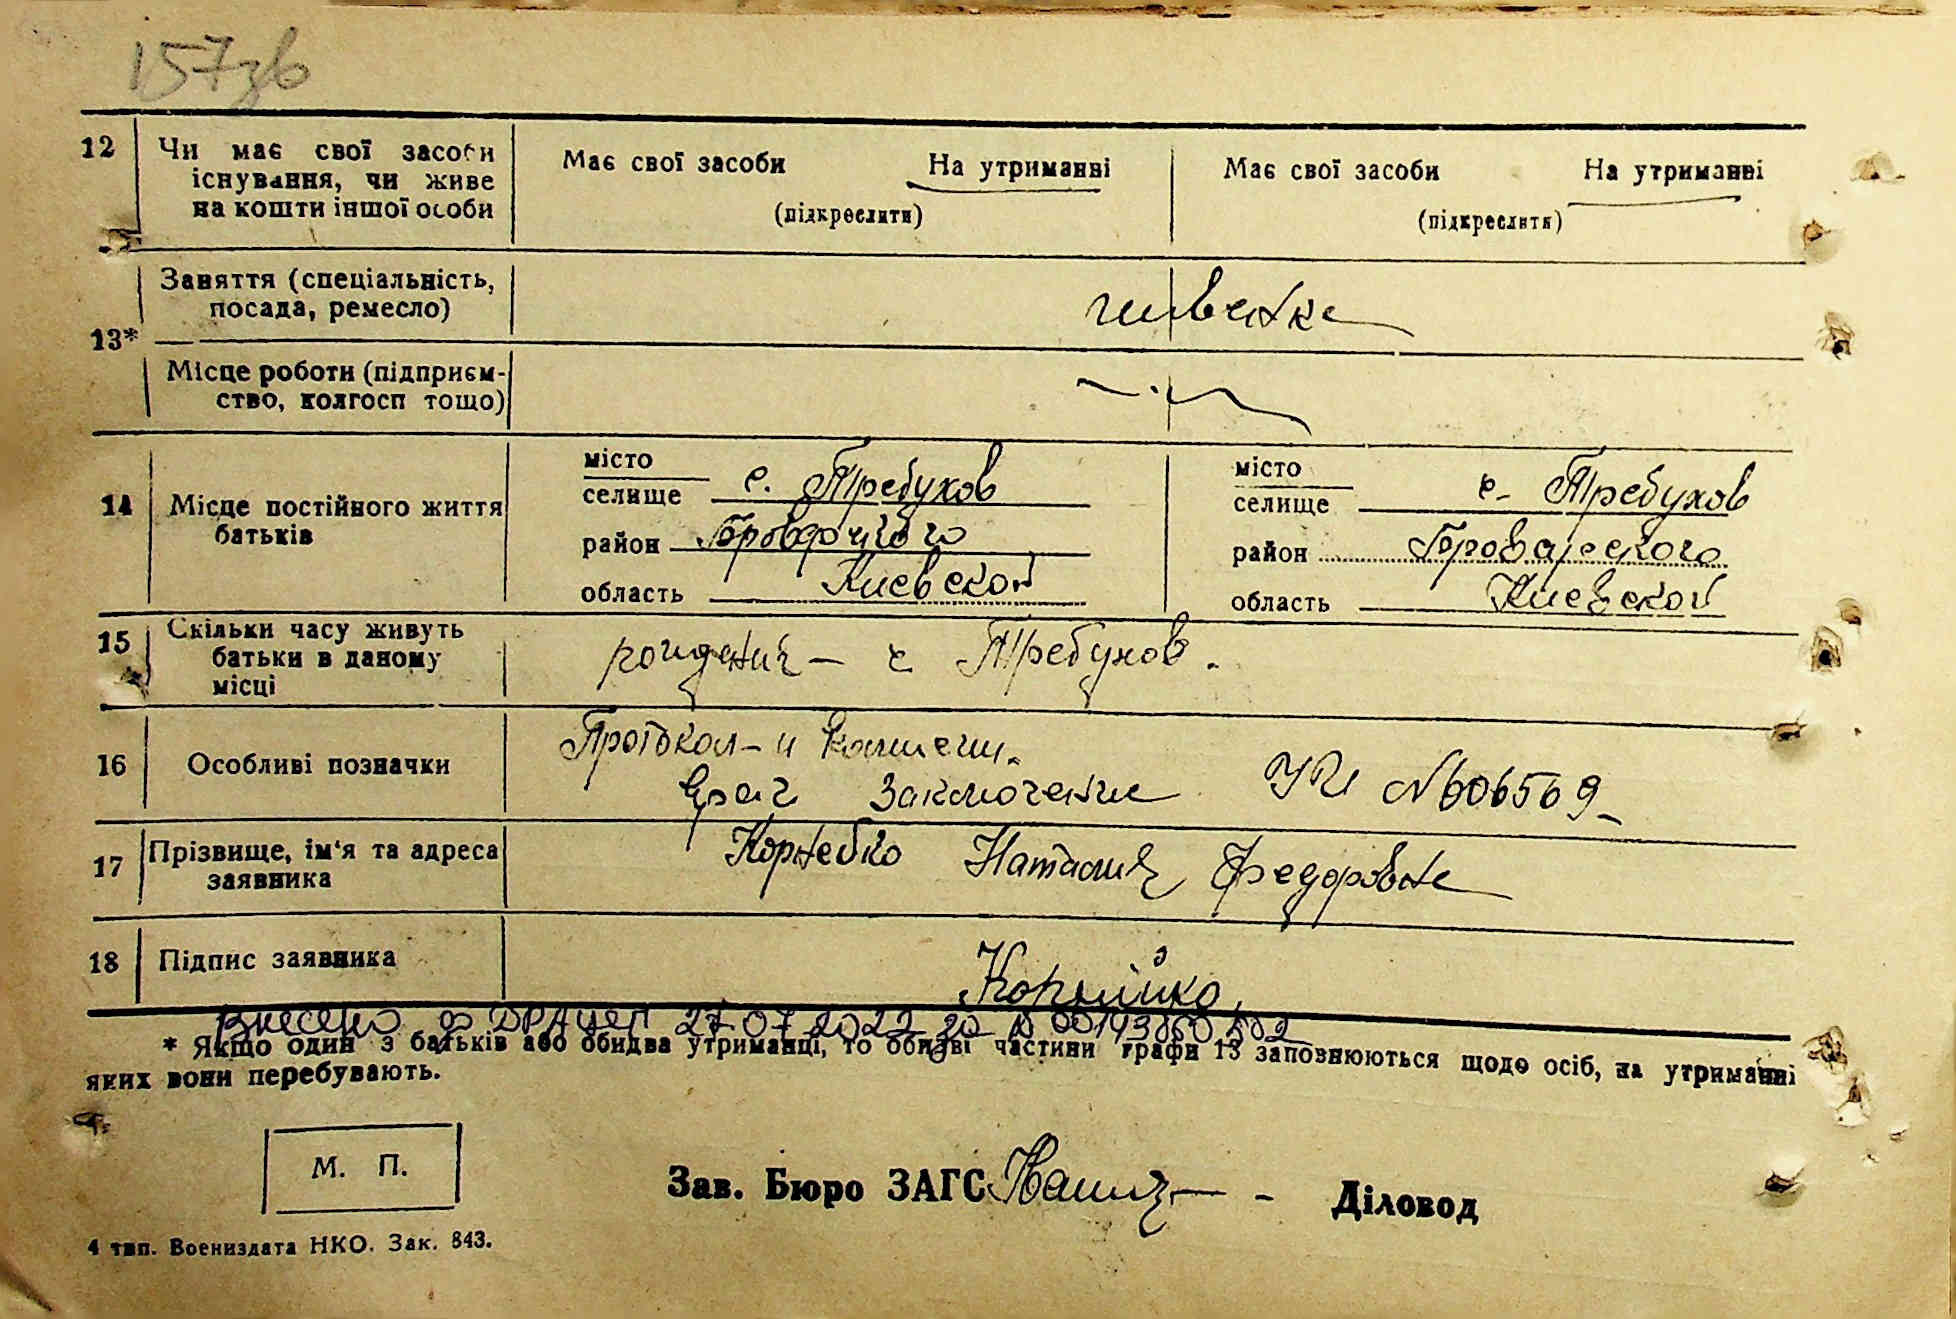 157зв
12 Чи має свої засоби
існування, чи живе
на кошти іншої особи
Має свої засоби На утриманні
(підкреслити)
Має свої засоби На утриманні
(підкреслити)
13*
Заняття (спеціальність,
посада, ремесло)
Місце роботи (підприєм-
ство, колгосп тощо)
14 Місце постійного життя
батьків
місто
селище с. Требухов
район
область Киевской
місто
селище с. Требухов
район Броварского
область Киевской
15 Скільки часу живуть
батьки в даному
місці
с Требухов.
16 Особливі позначки
Протокол - и
врач заключение № 606569
17 Прізвище, ім'я та адреса
заявника
Наталия Федоровна
18 Підпис заявника
Корнійко
Внесено до ДРАЦСГ 27.07.2022 за № 00143860502
* Якщо один з батьків або обидва утриманці, то обидві частини графи 13 заповнюються щодо осіб, на утриманні
яких вони перебувають.
М. П.
Зав. Бюро ЗАГС - Діловод
4 тип. Воениздата НКО. Зак. 843.